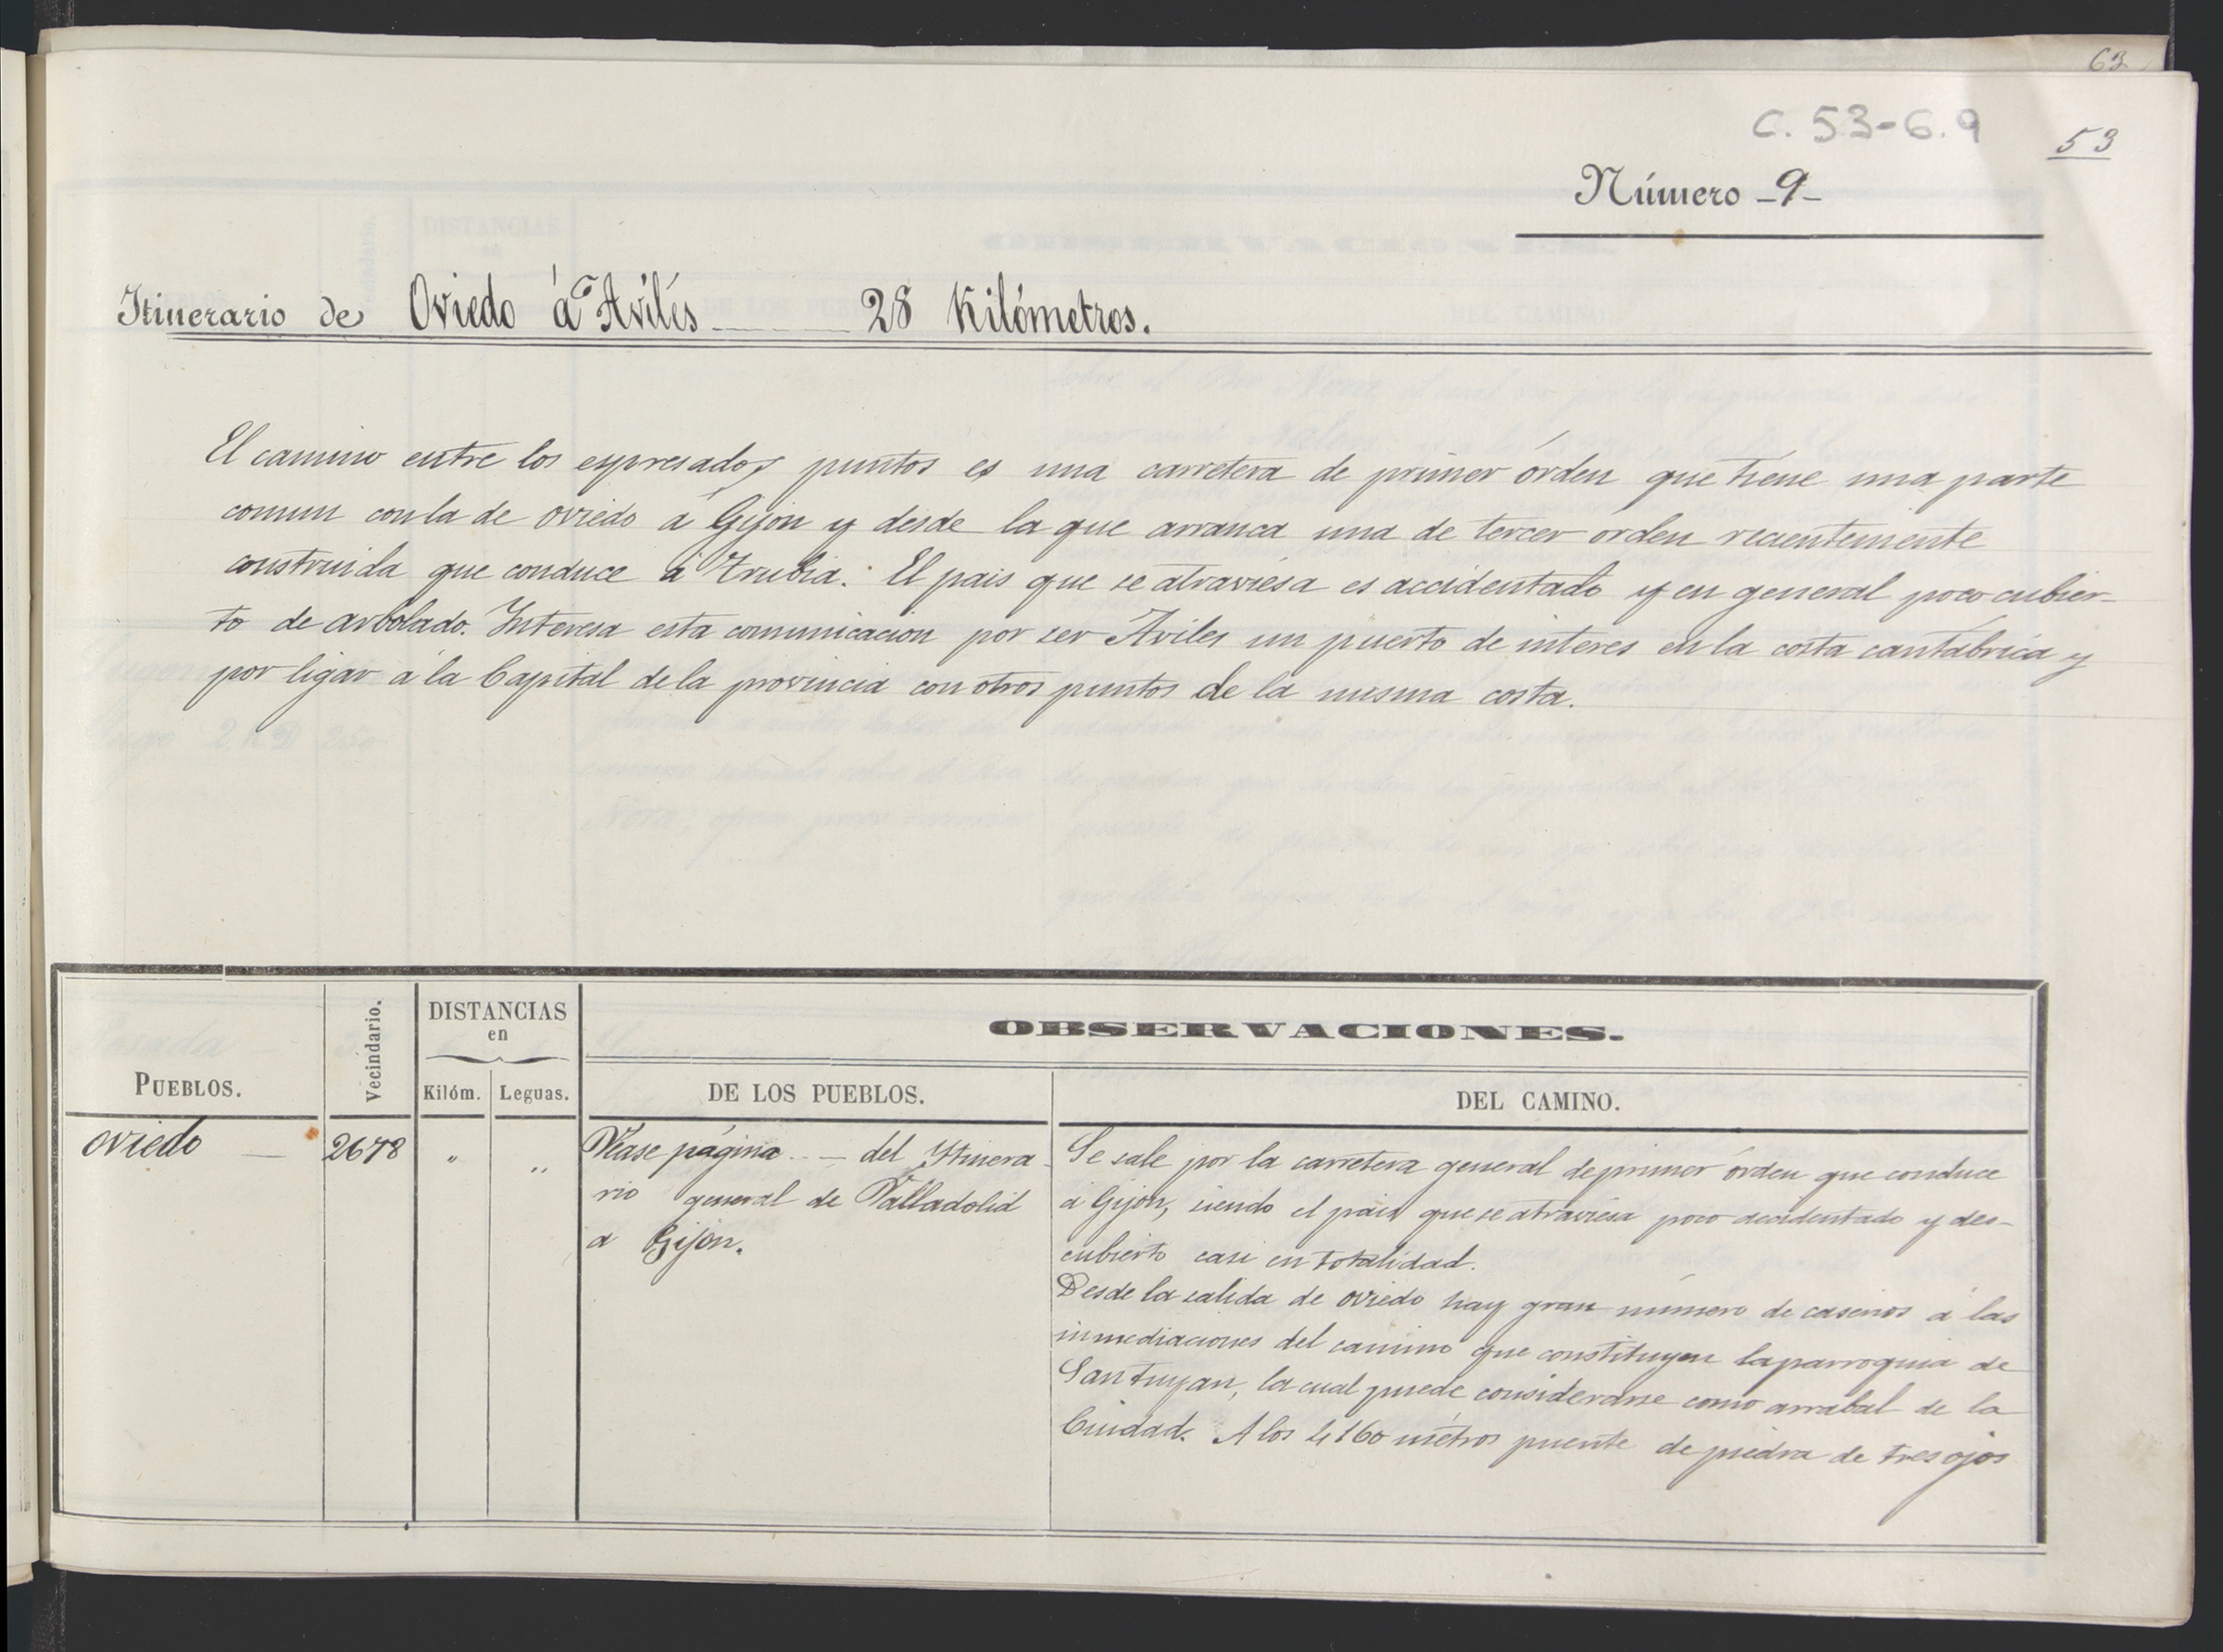 63
C. 53-6.9
53
Número -9-
Itinerario de Oviedo á Avilés 28 Kilómetros.
El camino entre los expresados puntos es una carretera de primer órden que tiene una parte
comun con la de Oviedo á Gijon y desde la que arranca una de tercer orden recientemente
construida que conduce á Trubia. El pais que se atraviesa es accidentado y en general poco cubier-
to de arbolado. Interesa esta comunicacion por ser Aviles un puerto de interes en la costa cantabrica y
por ligar á la Capital de la provincia con otros puntos de la misma costa.
PUEBLOS.
Vecindario.
DISTANCIAS
en
Kilóm. Leguas.
OBSERVACIONES.
DE LOS PUEBLOS.
DEL CAMINO.
Oviedo
2678
" "
Véase página del Itinera
rio general de Valladolid
a Gijón.
Se sale por la carretera general de primer órden que conduce
á Gijón, siendo el pais que se atraviesa poco accidentado y des-
cubierto casi en totalidad.
Desde la salida de Oviedo hay gran número de caserios á las
inmediaciones del camino que constituyen la parroquia de
Santuyan, la cual puede considerarse como arrabal de la
Ciudad. A los 4160 métros puente de piedra de tres ojos